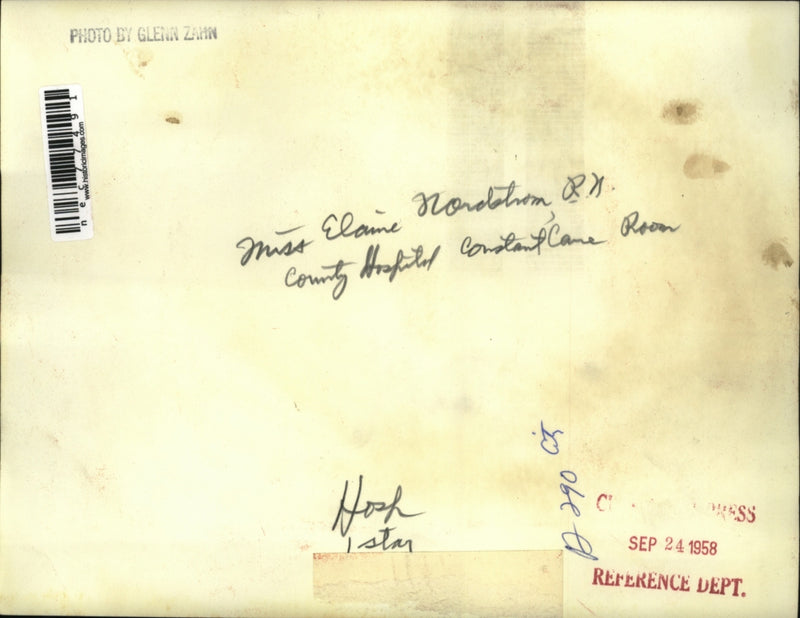 PHOTO BY GLENN ZAHN
www.historicimages.com
Miss Elaine Nordstrom, R.N.
County Hospital Constant Care Room
Hosp
1 star
PRESS
SEP 24 1958
REFERENCE DEPT.